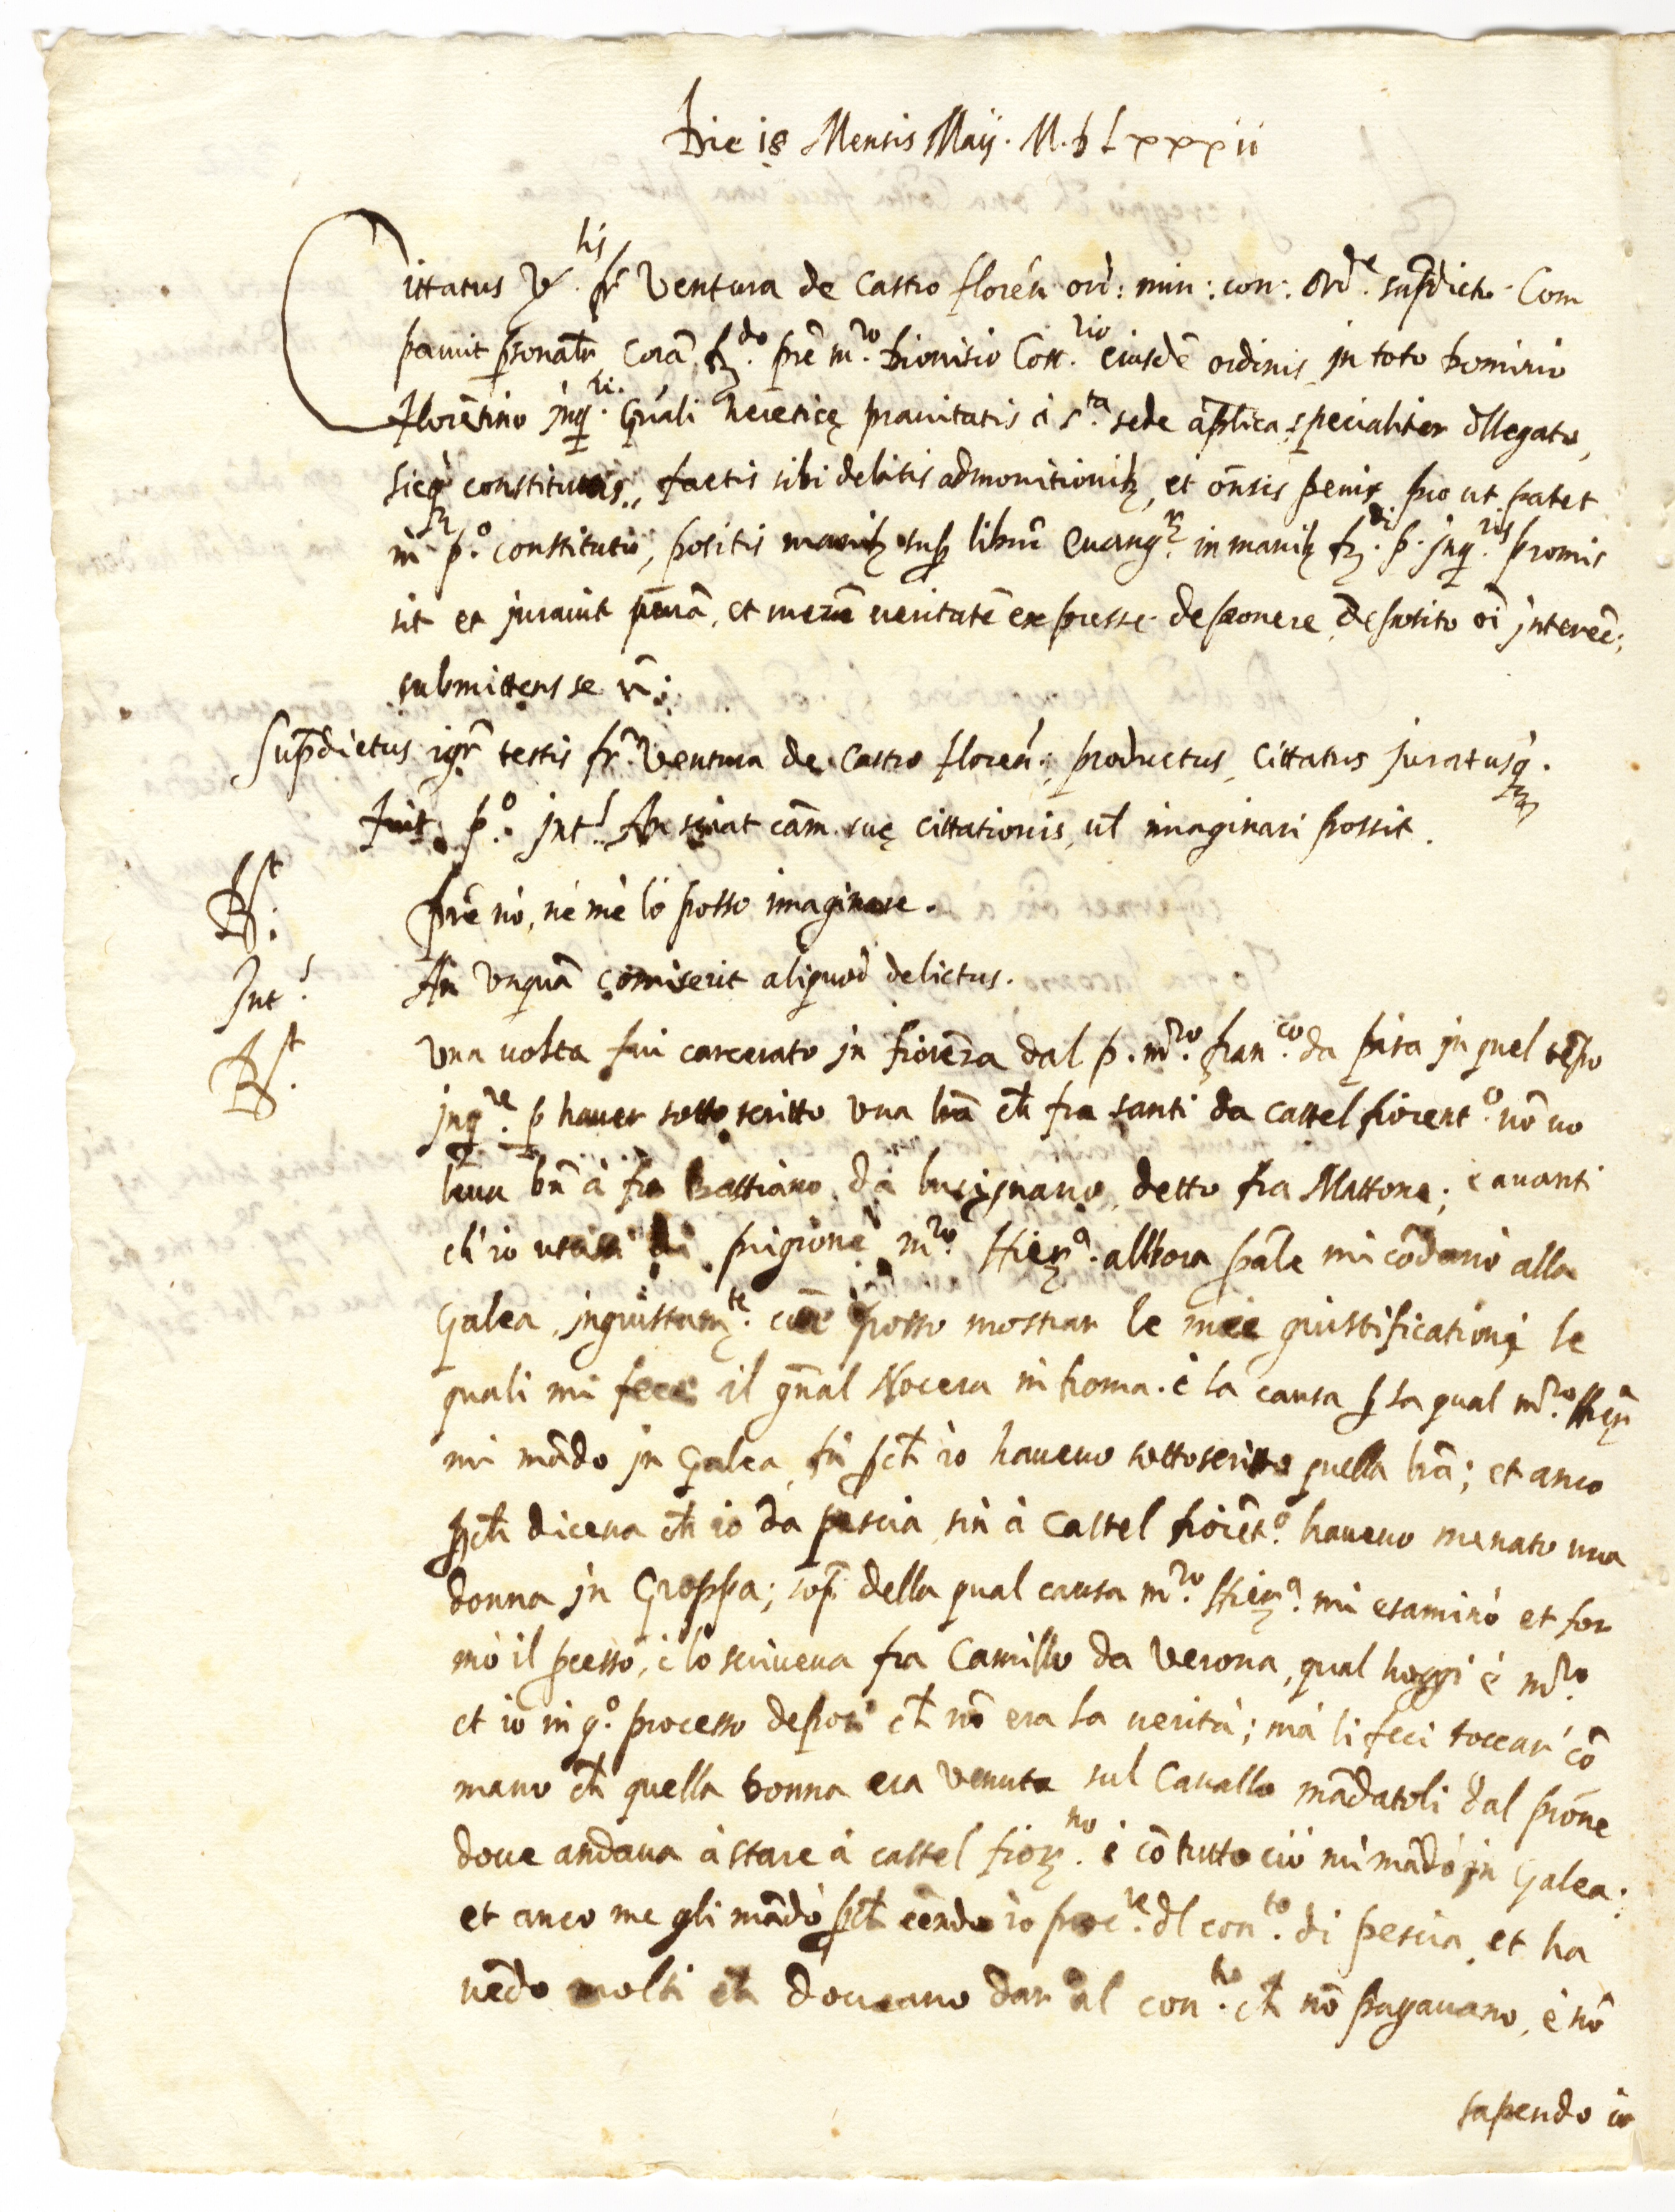 Die 18 Mensis Maij. M.D Lxxxii
Cittatus V.lis fr Ventura de Castro florẽn ord: min: con: ord.e supdicto. Com
paruit psonalr Corã R.do prẽ m.ro Dionisio Cos.rio eiusdẽ ordinis, in toto Dominio
florẽtino inq.ri Gñali hereticę prauitatis à s.ta sede aplica specialiter dllegato,
sicq constitutis, factis sibi debitis admonitionib, et oñsis penis pro ut patet
in p.o constituto, positis manib sup librũ Euang. in manib R.di p. inq.ris promis
sit et jurauit purã, et merã ueritatẽ expresse deponere, deposito oĩ interec:
submittens se
Supdictus igr testis fr Ventura de Castro florẽn: productus, cittatus juratusq.
fuit p.o int. An sciat cãm suę cittationis, ul imaginari possit.
R.st: prẽ nò, nè mè lo posso imaginare.
Int. An Vnquã comiserit aliquod delictus.
R.st. Vna uolta fui carcerato in fiorẽza dal p. m.ro fran.co da pisa in quel tẽpo
inq.re p hauer sotto scritto Vna lrã ch fra santi da Castel fiorent.o nõ uo
leua bñ à fra Bastiano da lucignano, detto fra Mattone; e auanti
ch'io uscissi di prigione m.ro Hier.o allhora pãle mi cõdanò alla
Galea, ingiustam.te come posso mostrar le mie giustificationi le
quali mi fece il gñal Nocera in Roma. è la causa p la qual m.ro Hier.o
mi mãdò in Galea fù pch io haueuo sottoscritto quella lrã; et anco
pch diceua ch io da pescia sin à Castel fiorẽt.o haueuo menato una
donna in Groppa; sop della qual causa m.ro Hier.o mi esaminò et for
mò il pcesso, è lo scriueua fra Camillo da Verona, qual hoggi è m.ro
et io in q.o processo deposi ch nõ era la uerità; mà li feci toccar cõ
mano ch quella Donna era Venuta sul Cauallo mãdatoli dal prõne
doue andaua à stare à castel fior.no è cõ tutto ciò mi mãdò in Galea;
et anco me gli mãdò pch eẽndo io proc.re dl con.to di pescia, et ha
uẽdo molti ch doueuano dar al con.to ch nõ pagauano, è nõ
sapendo io